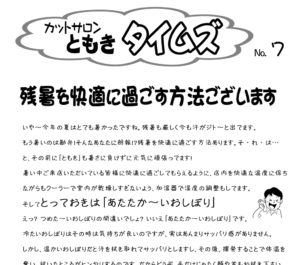 カットサロン
ともき タイムズ
No. 7
残暑を快適に過ごす方法ございます
いや〜今年の夏はとても暑かったですね。残暑も厳しく今も汗がジト〜と出てます。
もう暑いのは勘弁!そんなあなたに朗報!?残暑を快適に過ごす方法あります。そ・れ・は…
と、その前に「ともき」も暑さに負けずに元気に頑張ってます!
暑い中ご来店いただいている皆様に快適に過ごしてもらえるように、店内を快適な温度に保ち
ながらもクーラーで室内が乾燥しすぎたいよう、加湿器で湿度の調整もしてます。
そしてとっておきは「あたたか〜いおしぼり」
えっ?つめた〜いおしぼりの間違いでしょ?いいえ「あたたか〜いおしぼり」です。
冷たいおしぼりはその時は気持ちが良いのですが、実はあんまりサッパリ感がありません。
しかし、温かいおしぼりだと汗を拭き取れてサッパリとしますし、その後、爆発することで体温を